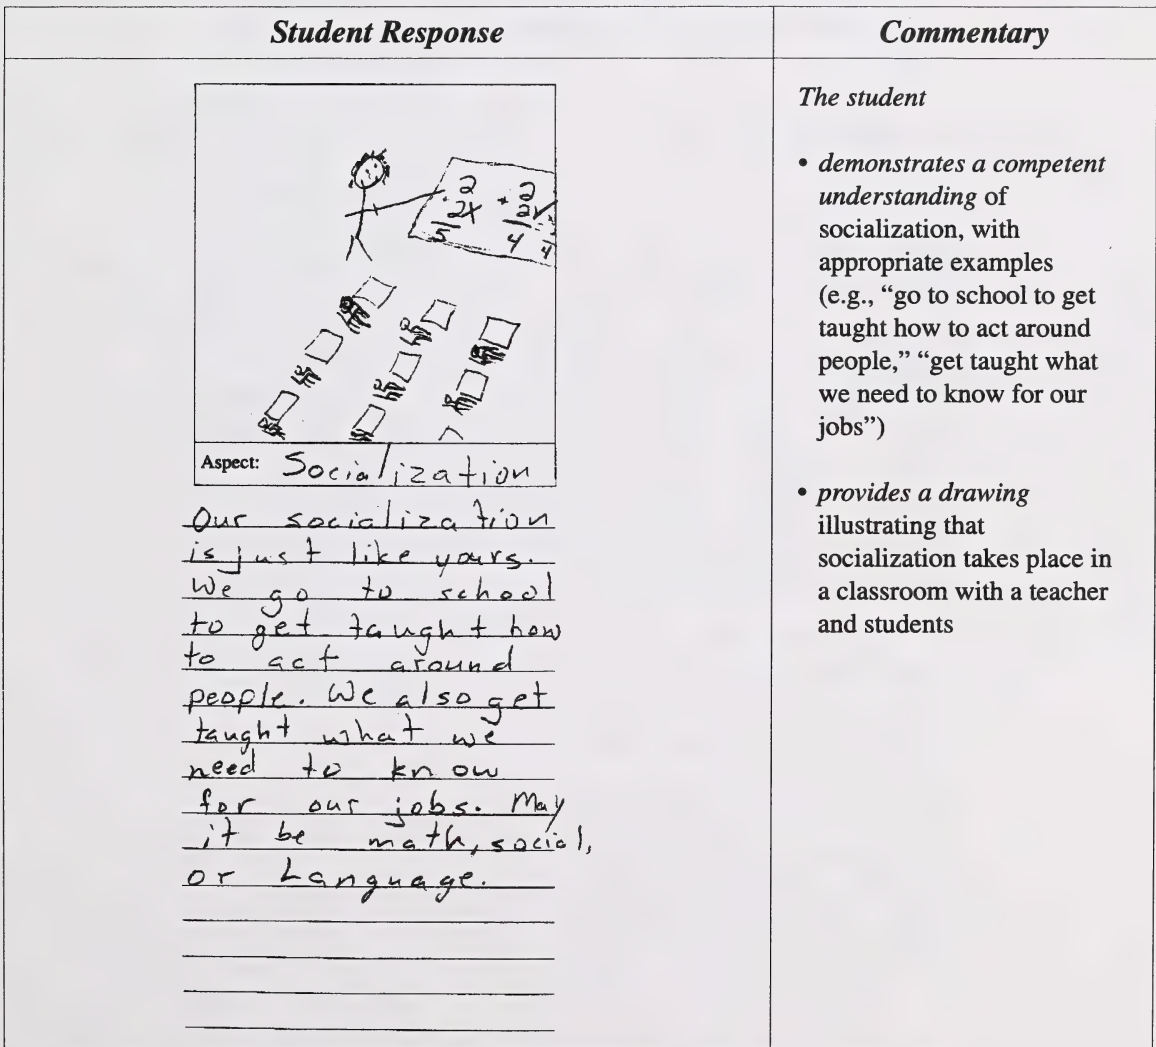 Student Response
Commentary
2 2
+ 2x + 2 ✓
5 4 4
Aspect: Socialization
Our socialization
is just like yours.
We go to school
to get taught how
to act around
people. We also get
taught what we
need to know
for our jobs. May
it be math, social,
or Language.
The student
• demonstrates a competent
understanding of
socialization, with
appropriate examples
(e.g., “go to school to get
taught how to act around
people,” “get taught what
we need to know for our
jobs”)
• provides a drawing
illustrating that
socialization takes place in
a classroom with a teacher
and students